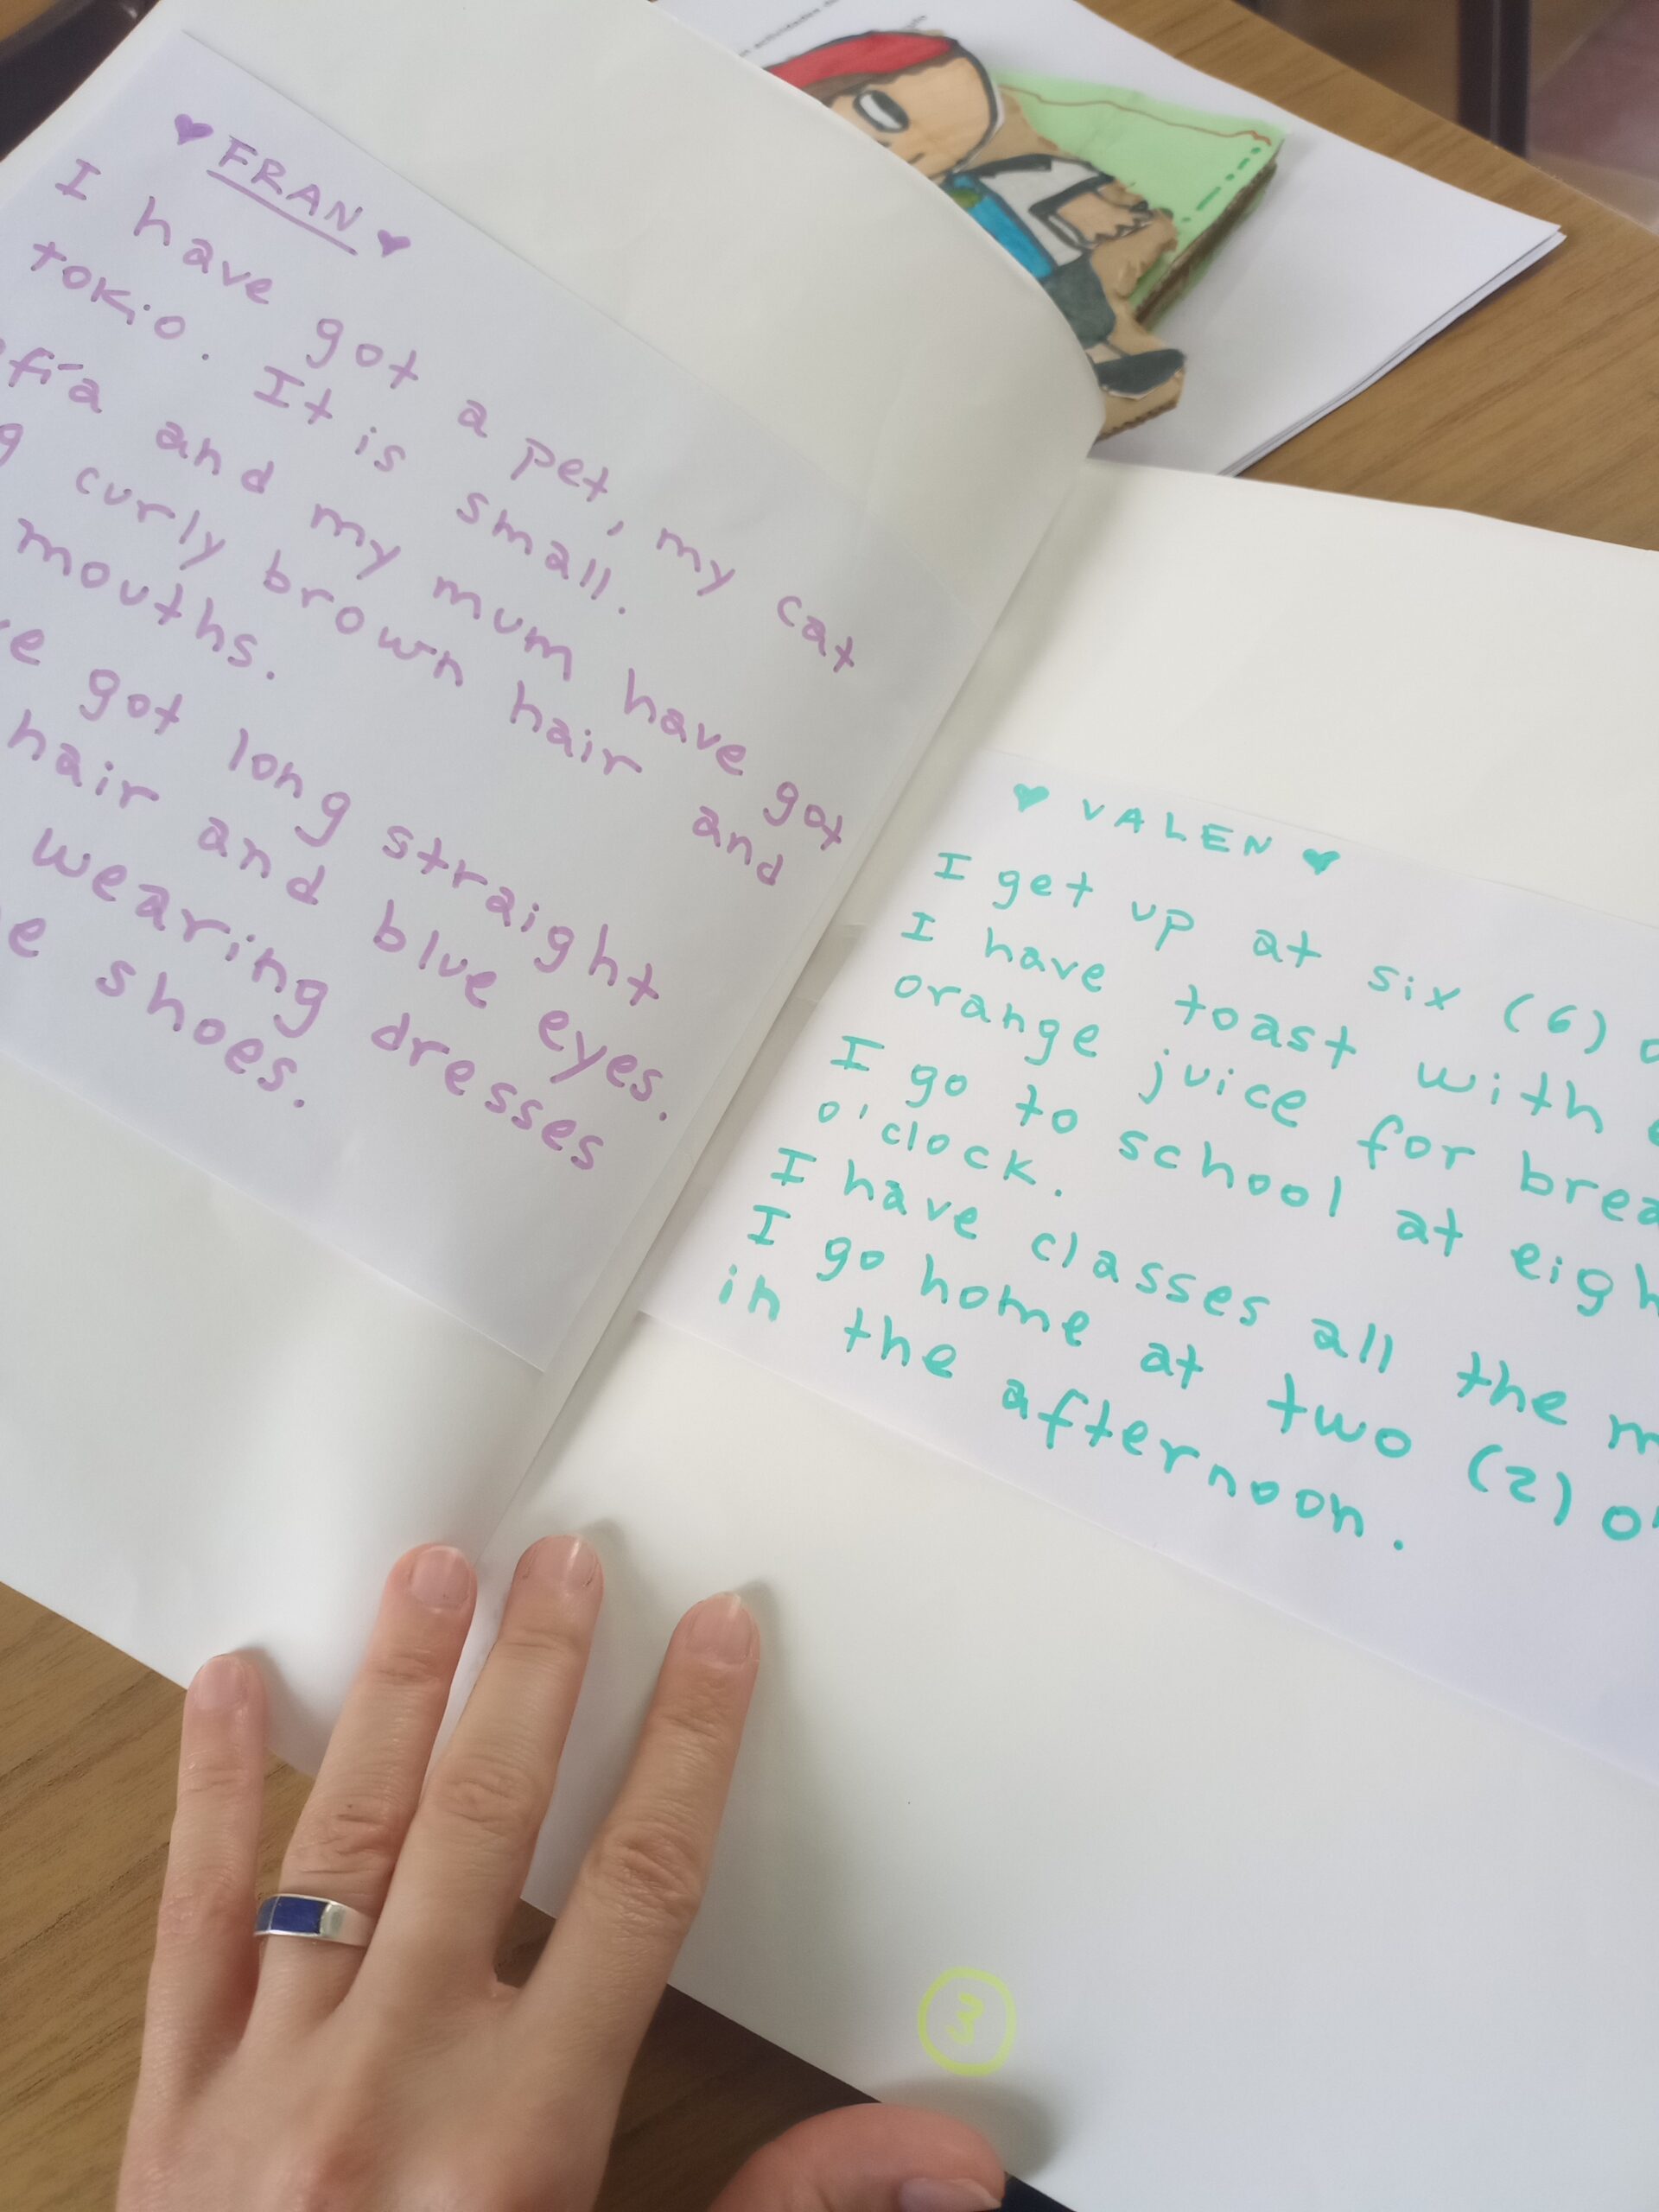 FRAN
I have got a pet, my cat
Tokio. It is small.
and my mum have got
curly brown hair and
mouths.
got long straight
hair and blue eyes.
wearing dresses
shoes.
VALEN
I get up at six (6)
I have toast with
orange juice for
I go to school at
o'clock.
I have classes all the
I go home at two (2)
in the afternoon.
3